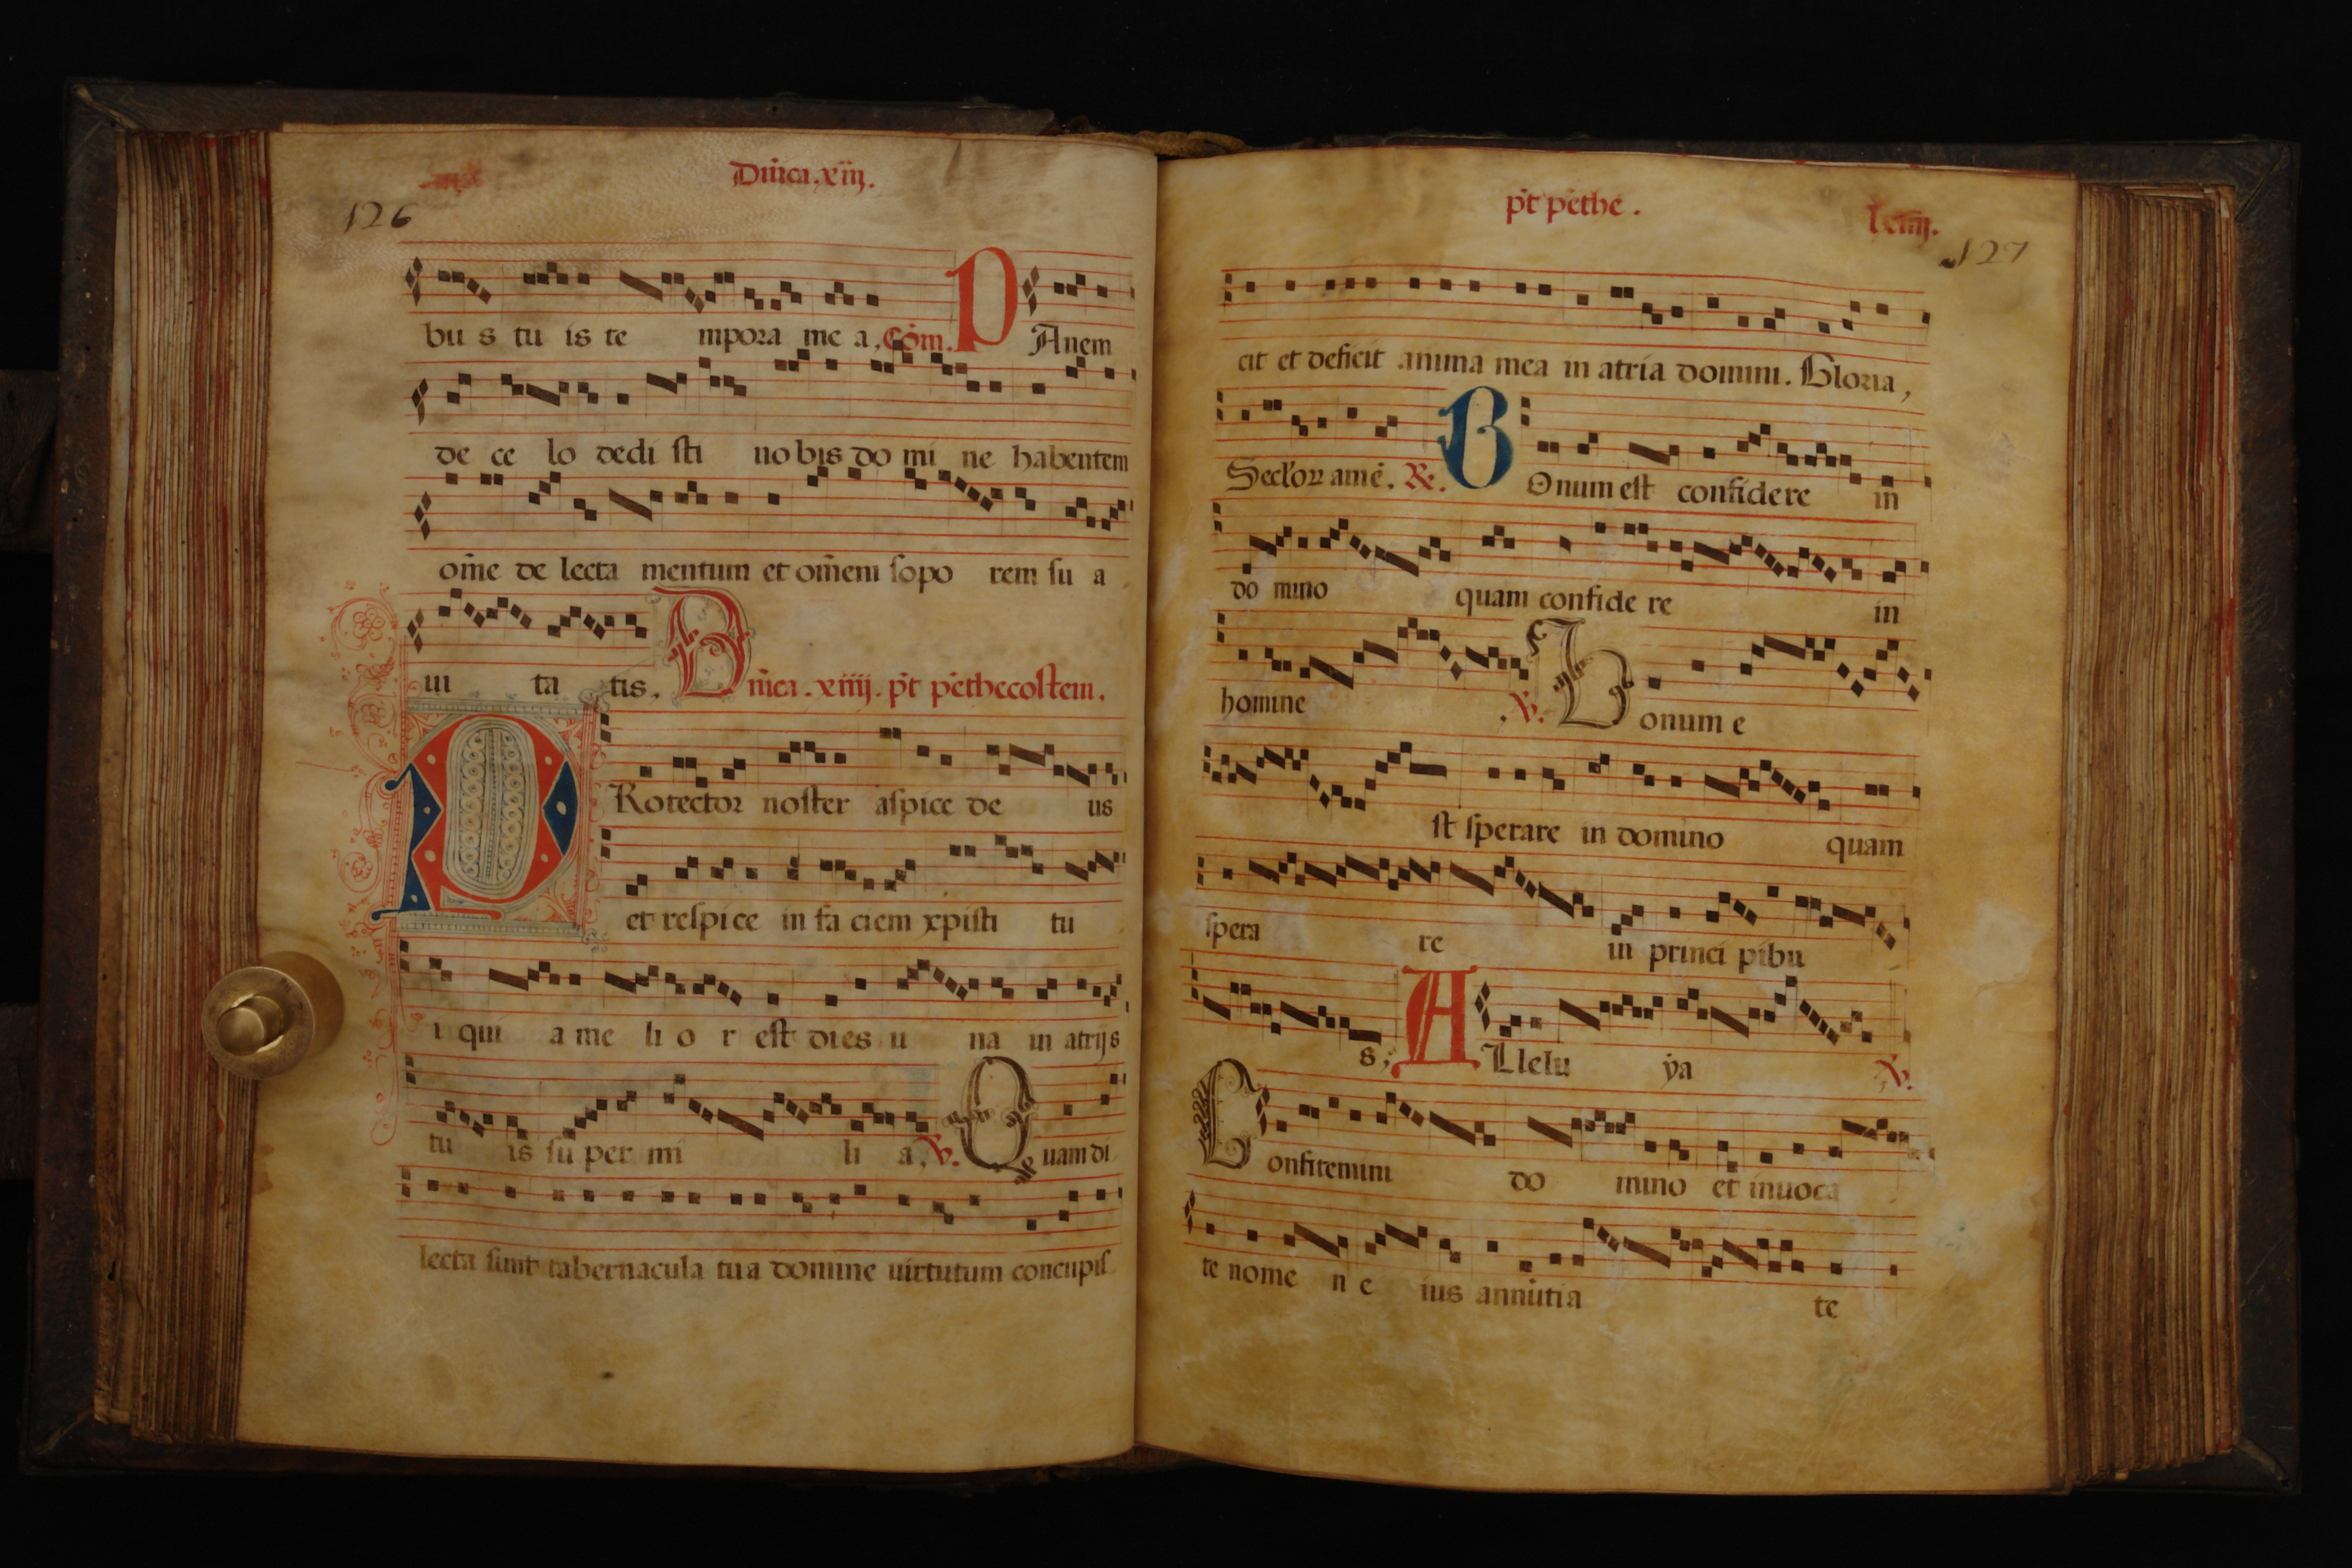 Dn̄ica.xiij.
126
bu s tu is te mpora me a. Cōm. P Anem
de ce lo dedi sti no bis do mi ne habentem
om̄e de lecta mentum et om̄em sopo rem su a
ui ta tis. Dn̄ica. xiiij. p̄t pēthecostem.
P Rotector noster aspice de us
et respice in fa ciem xpisti tu
i qui a me li o r est dies u na in atrijs
tu is su per mi li a. ℣. Q uam di
lecta sunt tabernacula tua domine uirtutum concupis
p̄t pēthe.
127
cit et deficit anima mea in atria domini. Gloria,
Seclor̄ amē. ℟. B Onum est confidere in
do mino quam confide re in
homine .℣. B onum e
st sperare in domino quam
spera re in princi pibu
s. A Llelu ya ℣.
C onfitemini do mino et inuoca
te nome n e ius annūtia te